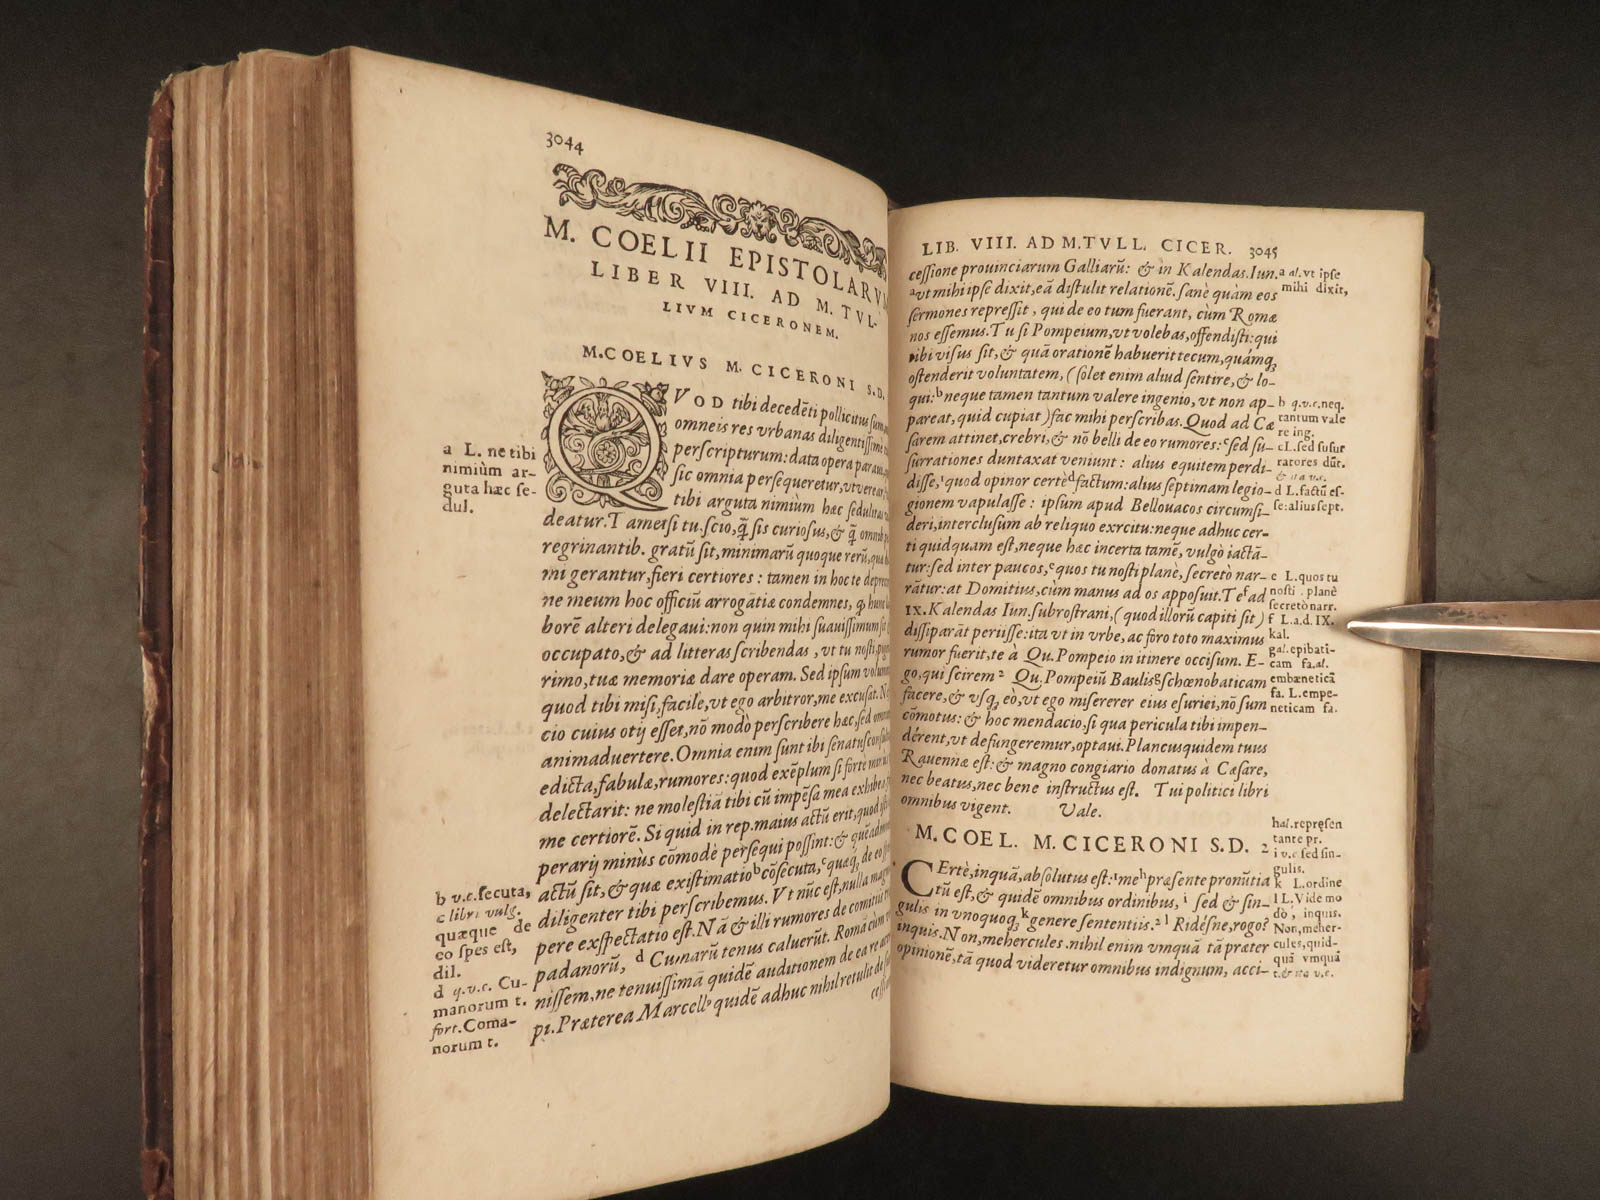 3044
M. COELII EPISTOLARVM
LIBER VIII. AD M. TVL-
LIVM CICERONEM.
M. COELIVS M. CICERONI S.D.
QVOD tibi decedẽti pollicitus sum,
omneis res vrbanas diligentissimè
perscripturum: data opera paraui,
sic omnia persequeretur, vt verear,
tibi arguta nimiùm hæc sedulitas
deatur. Tametsi tu. scio, q̃ sis curiosus, & q̃ omnib.
regrinantib. gratũ sit, minimarũ quoque rerũ, quæ
mi gerantur, fieri certiores: tamen in hoc te deprecor
ne meum hoc officiũ arrogãtiæ condemnes, q
borẽ alteri delegaui: non quin mihi suauissimum sit
occupato, & ad litteras scribendas, vt tu nosti,
rimo, tuæ memoriæ dare operam. Sed ipsum volumen
quod tibi misi, facile, vt ego arbitror, me excusat.
cio cuius otij esset, nõ modò perscribere hæc, sed omnino
animaduertere. Omnia enim sunt ibi senatusconsulta
edicta, fabulæ, rumores: quod exẽplum si forte minus
delectarit: ne molestiã tibi cũ impẽsa mea exhibeã
me certiorẽ. Si quid in rep. maius actũ erit, quod isti
perarij minùs cõmodè persequi possint: & quẽadmodum
actũ sit, & quæ existimatio ᵇcõsecuta, ᶜquæq; de eo
diligenter tibi perscribemus. Vt nũc est, nulla magno
pere exspectatio est. Nã & illi rumores de comitiis
padanorũ, ᵈ Cumarũ tenus caluerũt. Romã cùm
nissem, ne tenuissimã quidẽ auditionem de ea re
pi. Præterea Marcellꝰ quidẽ adhuc nihil retulit de
a L. ne tibi
nimiùm ar-
guta hæc se-
dul.
b v.c. secuta,
c libri vulg.
quæque de
eo spes est,
dil.
d q.v.c. Cu-
manorum t.
fort. Coma-
norum t.
LIB. VIII. AD M. TVLL. CICER. 3045
cessione prouinciarum Galliarũ: & in Kalendas. Iun.
ᵃvt mihi ipse dixit, eã distulit relationẽ. sanè quàm eos
sermones repressit, qui de eo tum fuerant, cùm Romæ
nos essemus. Tu si Pompeium, vt volebas, offendisti: qui
tibi visus sit, & quã orationẽ habuerit tecum, quámq;
ostenderit voluntatem, (solet enim aliud sentire, & lo-
qui: ᵇneque tamen tantum valere ingenio, vt non ap-
pareat, quid cupiat) fac mihi perscribas. Quod ad Cæ
sarem attinet, crebri, & nõ belli de eo rumores: ᶜsed su-
surrationes duntaxat veniunt: alius equitem perdi-
disse, quod opinor certè ᵈfactum: alius septimam legio-
gionem vapulasse: ipsum apud Bellouacos circumsi-
deri, interclusum ab reliquo exrcitu: neque adhuc cer-
ti quidquam est, neque hæc incerta tamẽ, vulgò iactã-
tur: sed inter paucos, ᵉquos tu nosti planè, secretò nar-
rãtur: at Domitius, cùm manus ad os apposuit. Te ᶠad
IX. Kalendas Iun. subrostrani, (quod illorũ capiti sit)
dissiparãt periisse: ita vt in vrbe, ac foro toto maximus
rumor fuerit, te à Qu. Pompeio in itinere occisum. E-
go, qui scirem ² Qu. Pompeiũ Baulis ᵍschœnobaticam
facere, & vsq; eò, vt ego misererer eius esuriei, nõ sum
cõmotus: & hoc mendacio, si qua pericula tibi impen-
dérent, vt defungeremur, optaui. Plancus quidem tuus
Rauennæ est: & magno congiario donatus à Cæsare,
nec beatus, nec bene instructus est. Tui politici libri
omnibus vigent. Vale.
M. COEL. M. CICERONI S.D. 2
CErtè, inquã, absolutus est: ¹me ʰ præsente pronũtia
tũ est, & quidẽ omnibus ordinibus, ⁱ sed & sin-
gulis in vnoquoq; ᵏ genere sententiis. ² ˡ Ridésne, rogo?
inquis. Non, mehercules. nihil enim vmquã tã præter
opinionẽ, tã quod videretur omnibus indignum, acci-
a al. vt ipse
mihi dixit,
b q.v.c. neq.
tantum vale
re ing.
c L. sed susur
ratores dũt.
& ita v.c.
d L. factũ es-
se: alius sept.
e L. quos tu
nosti planè
secretò narr.
f L. a.d. IX.
kal.
g al. epibati-
cam fa. al.
embæneticã
fa. L. empe-
neticam fa.
h al. repręsen
tante pr.
i v.c. sed sin-
gulis.
k L. ordine
l L. Vide mo
dò, inquis.
Non, meher-
cules, quid-
quã vmquã
t. & ita v.c.